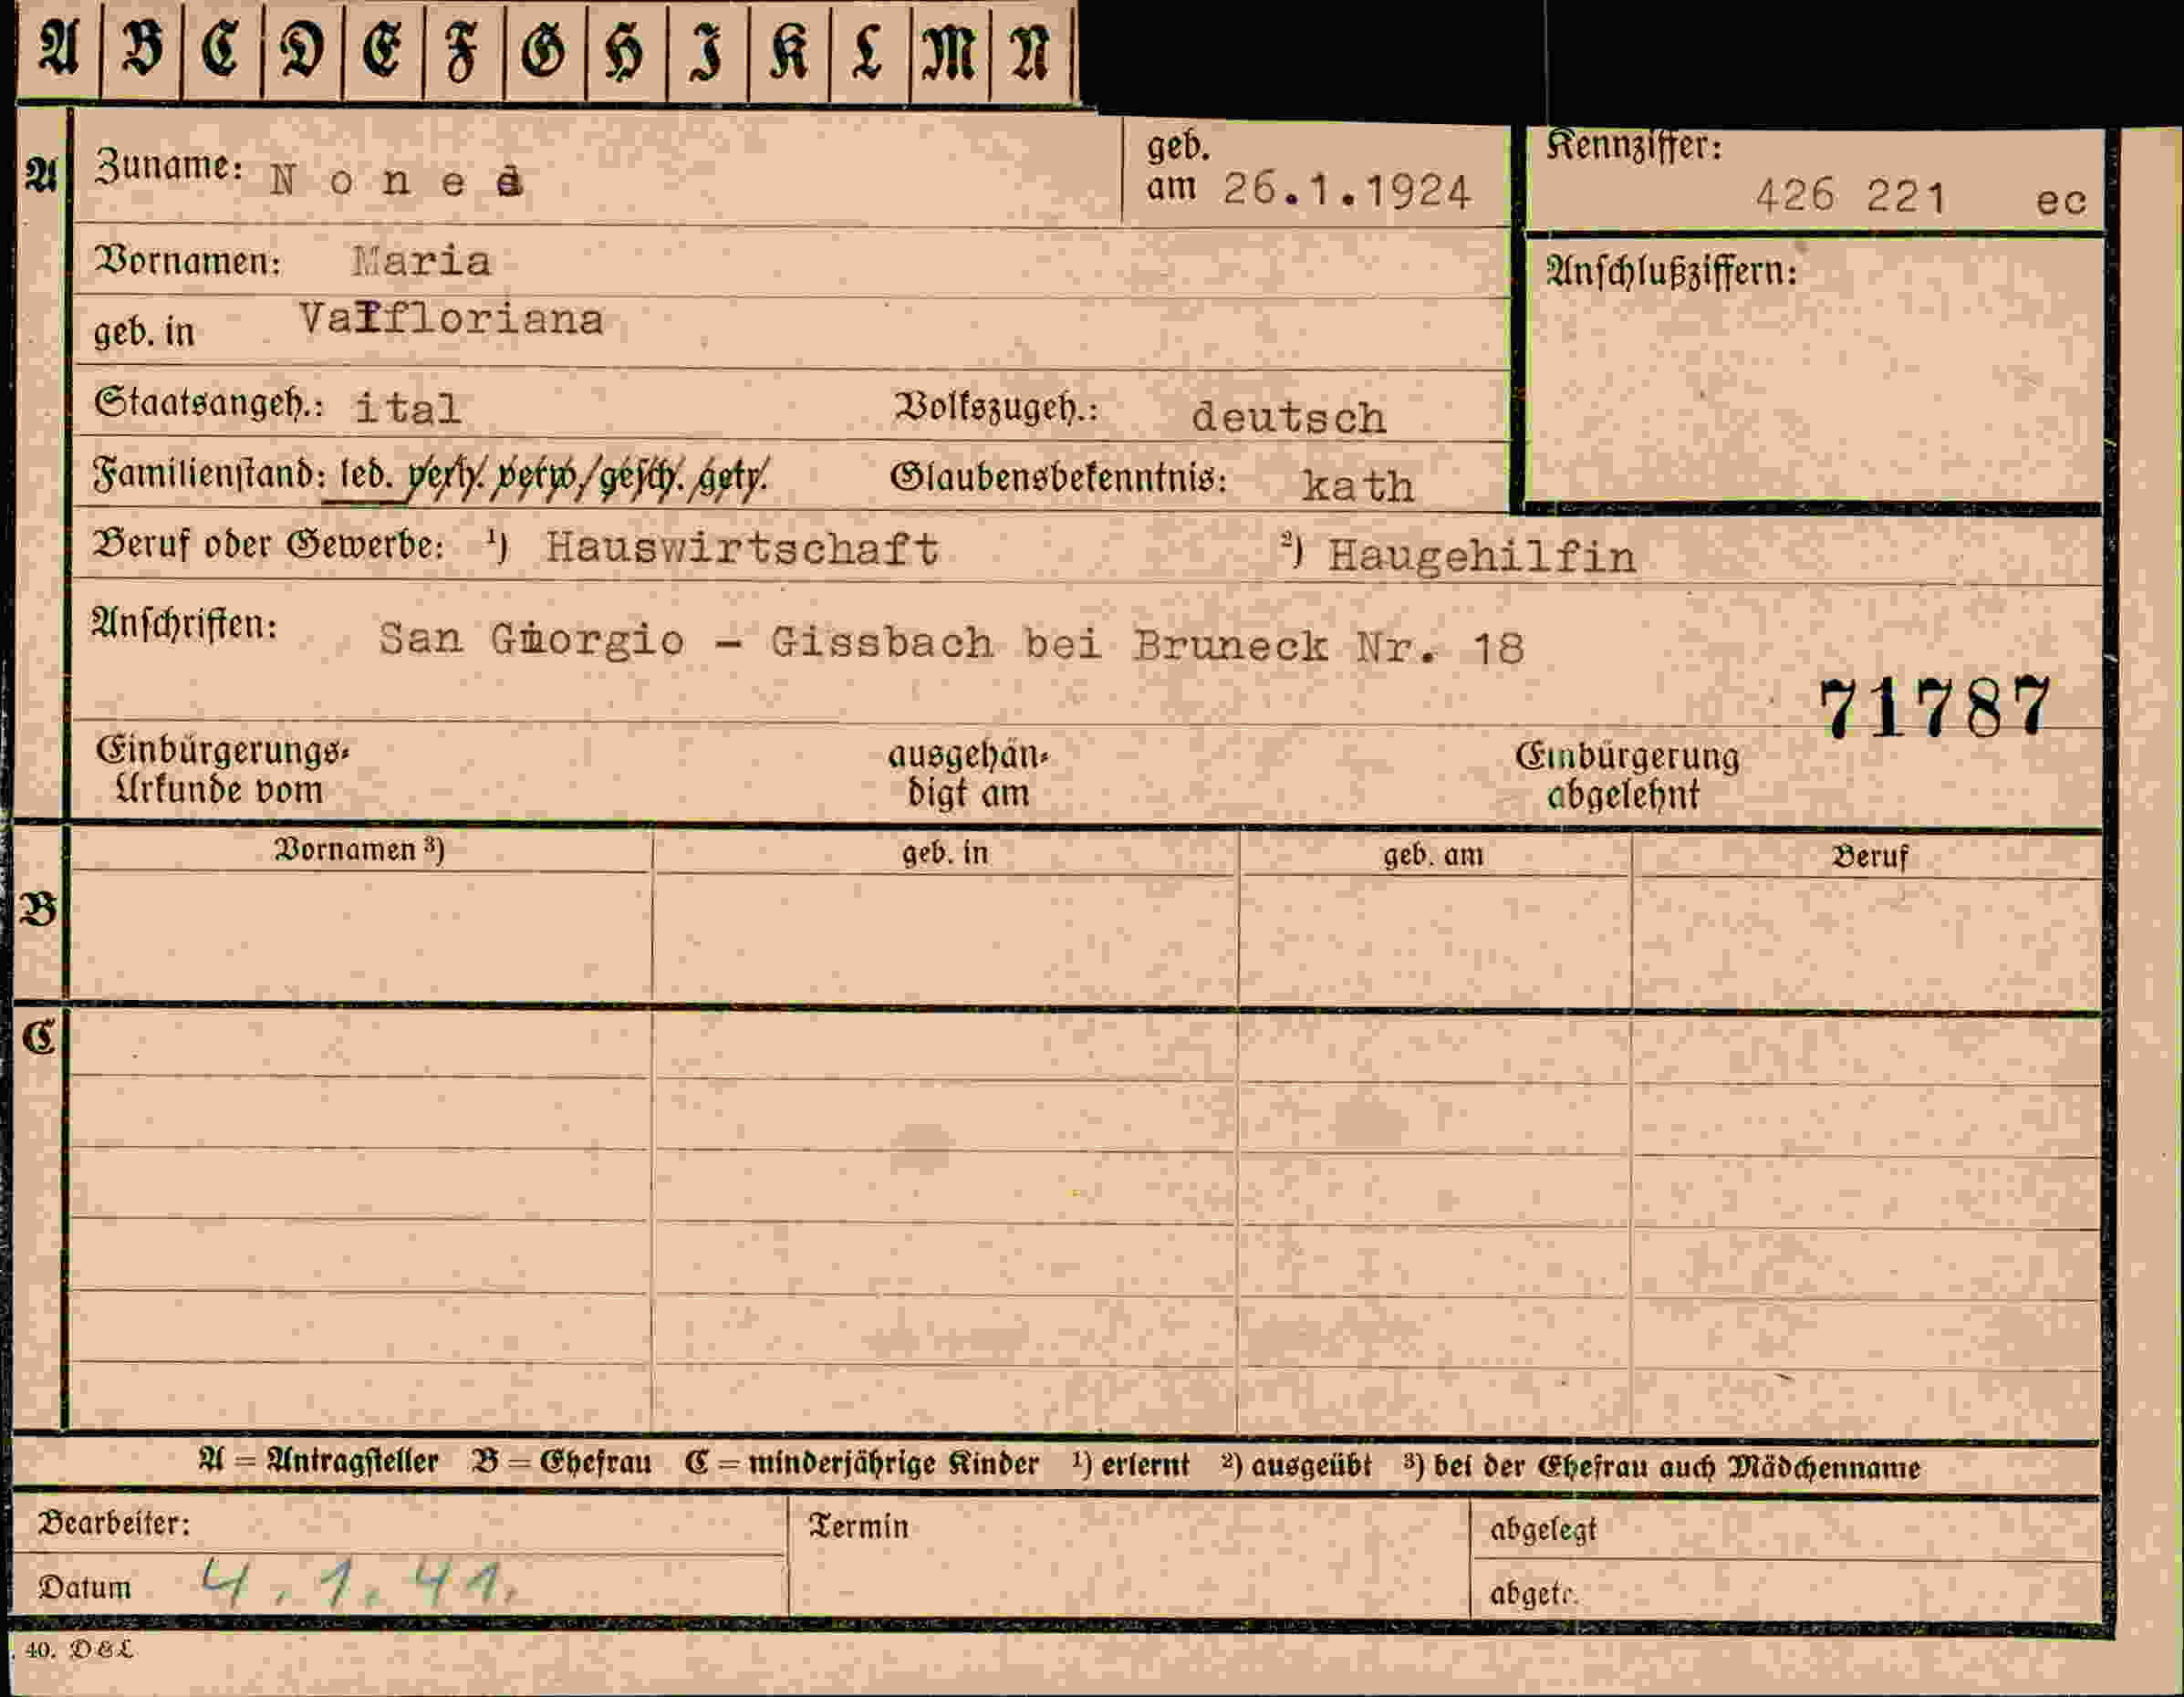 A B C D E F G H I K L M N
A Zuname: Noned geb. am 26.1.1924 Kennziffer: 426 221 ec
Vornamen: Maria Anschlußziffern:
geb. in Valfloriana
Staatsangeh.: ital Volkszugeh.: deutsch
Familienstand: led. verh. verw. gesch. getr. Glaubensbekenntnis: kath
Beruf oder Gewerbe: ¹) Hauswirtschaft ²) Haugehilfin
Anschriften: San Giorgio - Gissbach bei Bruneck Nr. 18
71787
Einbürgerungs-
Urkunde vom
ausgehän-
digt am
Einbürgerung
abgelehnt
Vornamen ³) geb. in geb. am Beruf
B
C
A = Antragsteller B = Ehefrau C = minderjährige Kinder ¹) erlernt ²) ausgeübt ³) bei der Ehefrau auch Mädchenname
Bearbeiter: Termin abgelegt
Datum 4.1.41. abgetr.
40. D&L